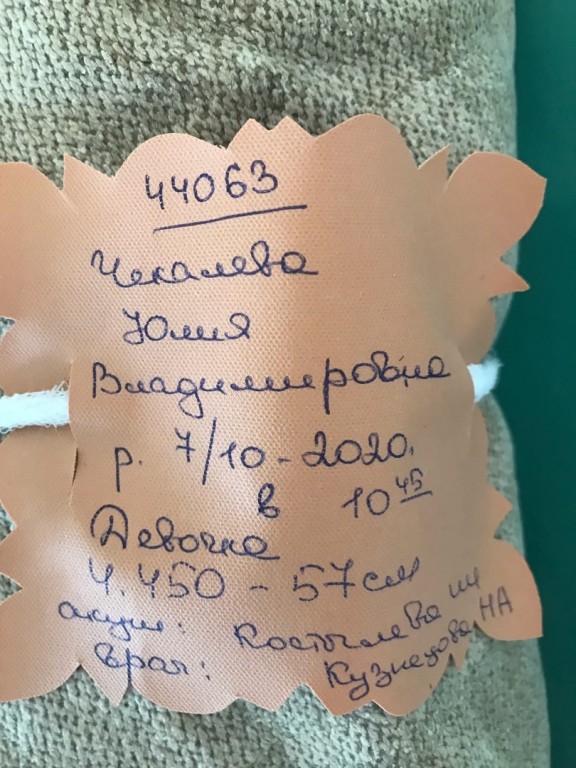 44063
Чекалева
Юлия
Владимировна
р. 7/10-2020.
в 10 45
Девочка
4.450 - 57см
акуш: Костылева
врач: Кузнецова НА